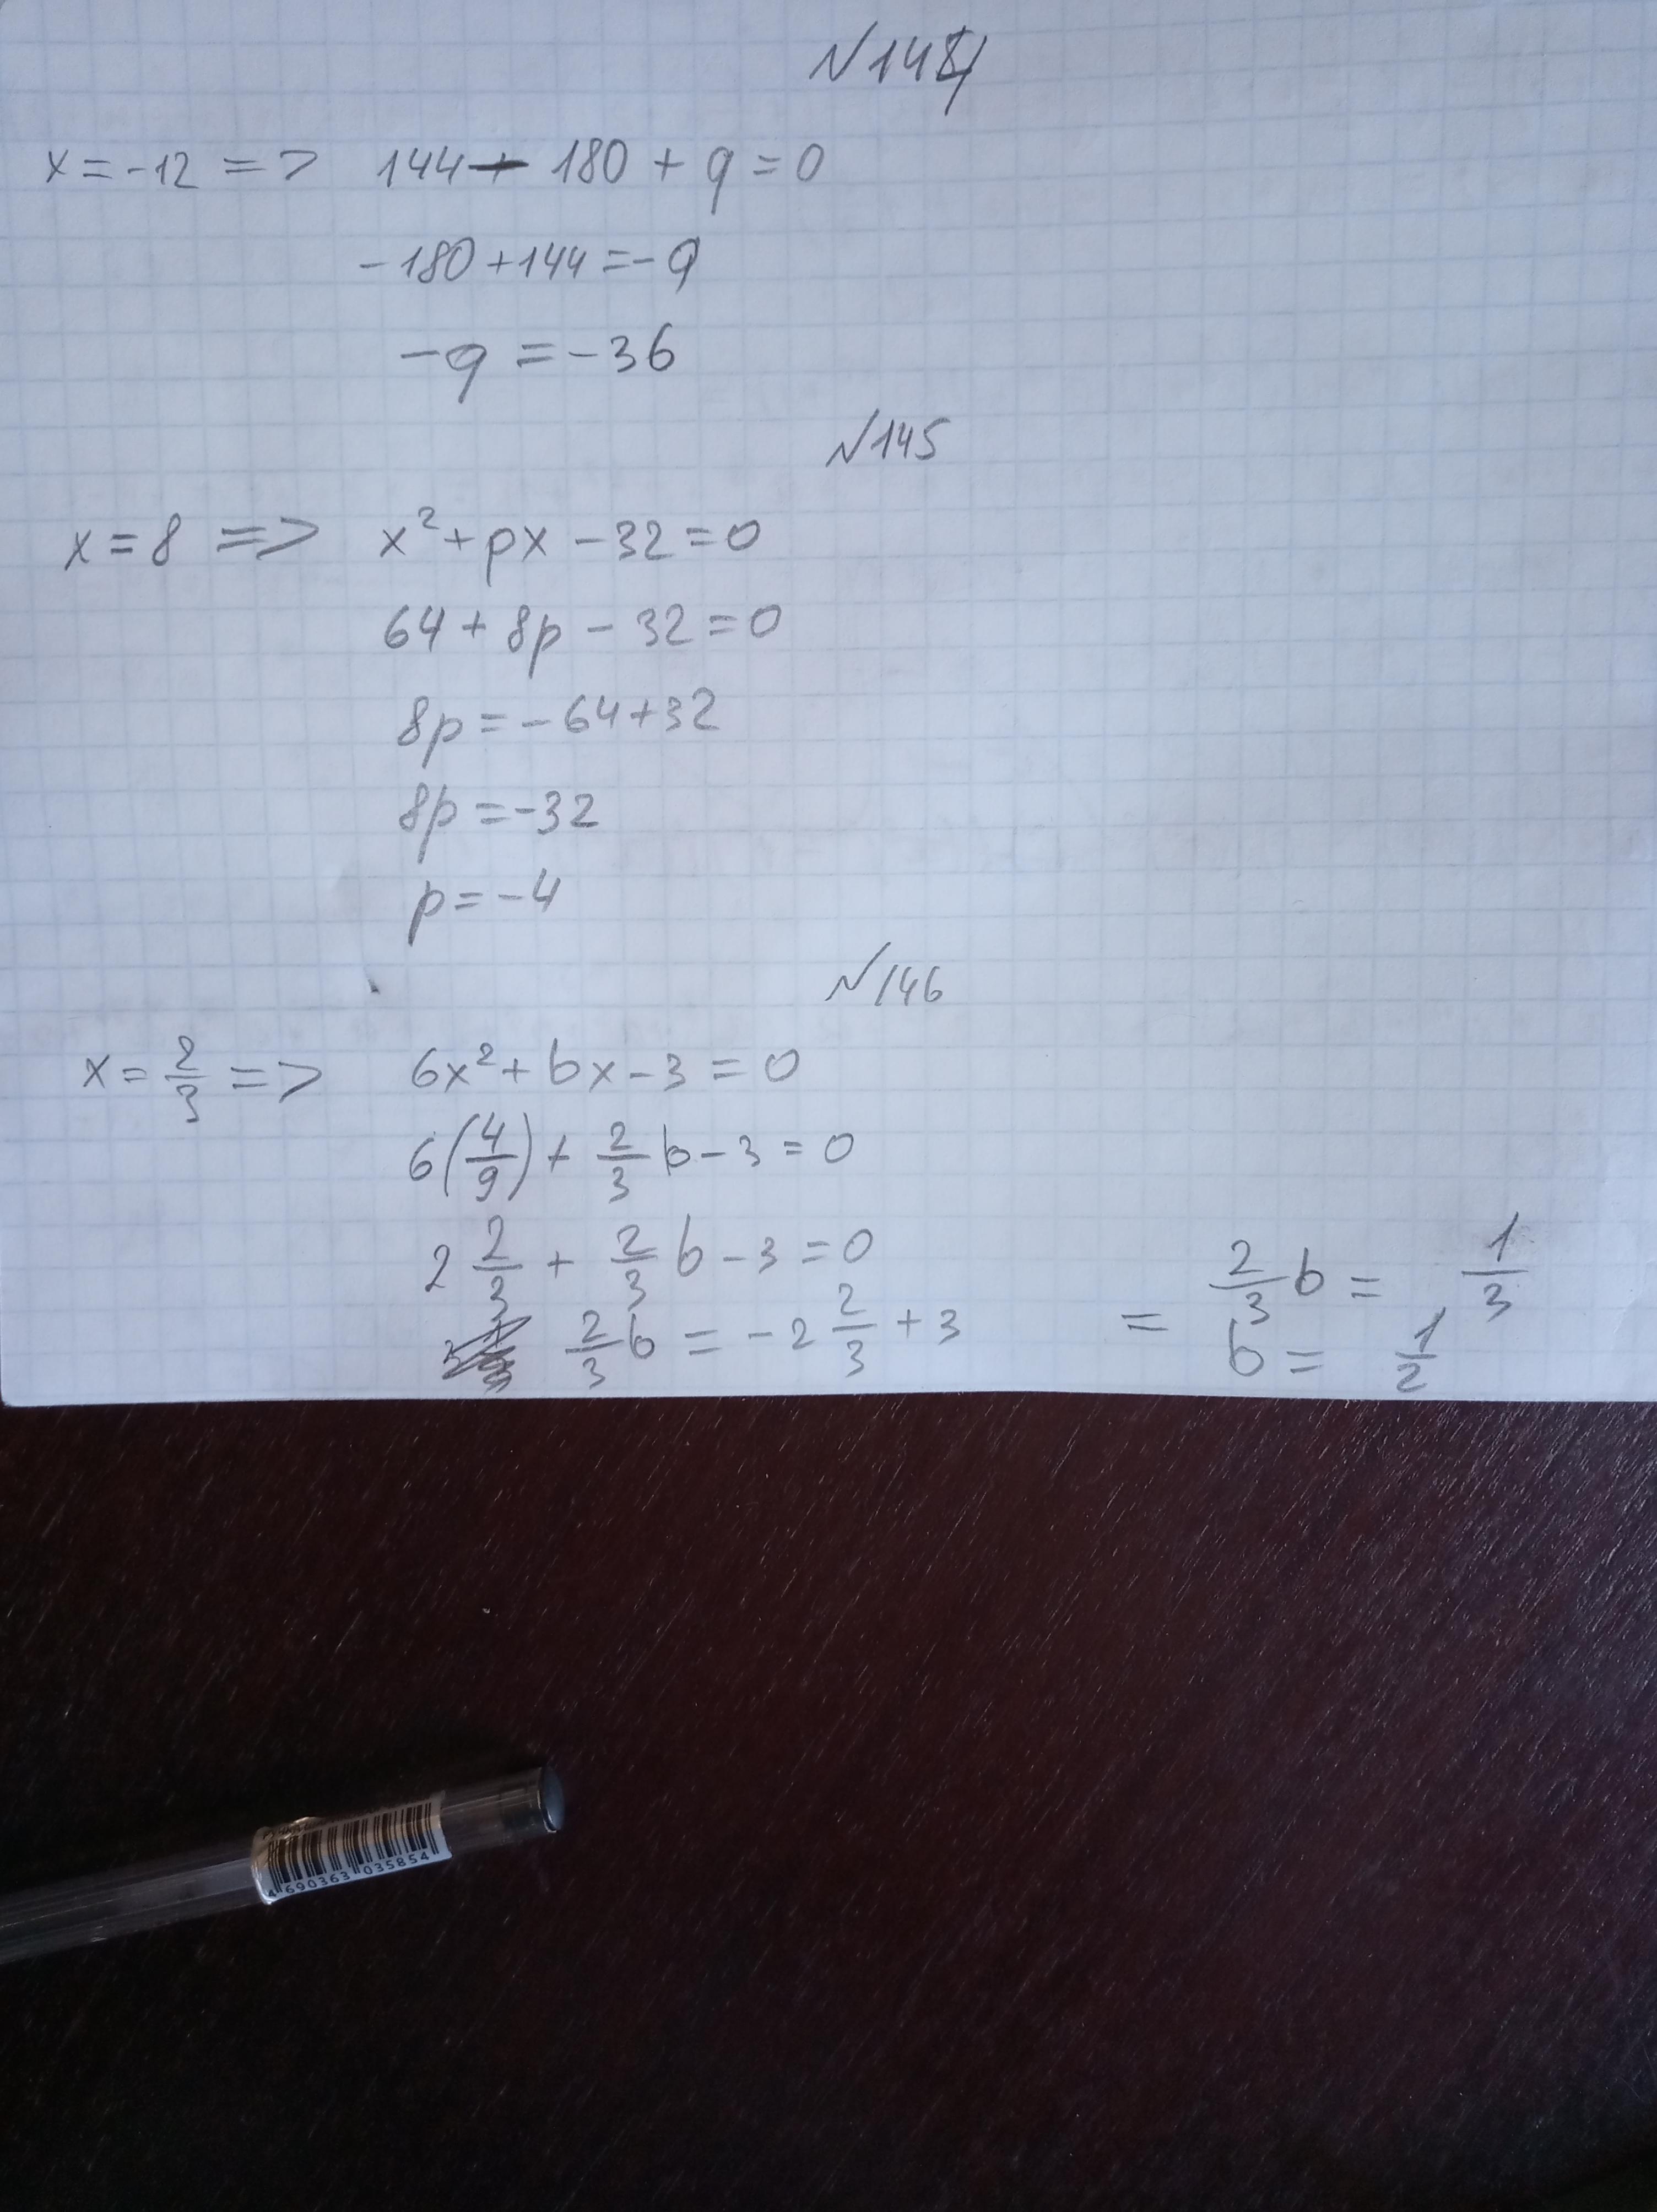 №144
x = -12 => 144 - 180 + q = 0
-180 + 144 = -q
-q = -36
№145
x = 8 => x² + px - 32 = 0
64 + 8p - 32 = 0
8p = -64 + 32
8p = -32
p = -4
№146
x = 2/3 => 6x² + bx - 3 = 0
6(4/9) + 2/3 b - 3 = 0
2 2/3 + 2/3 b - 3 = 0
2/3 b = -2 2/3 + 3
= 2/3 b = 1/3
b = 1/2
4 690363 035854